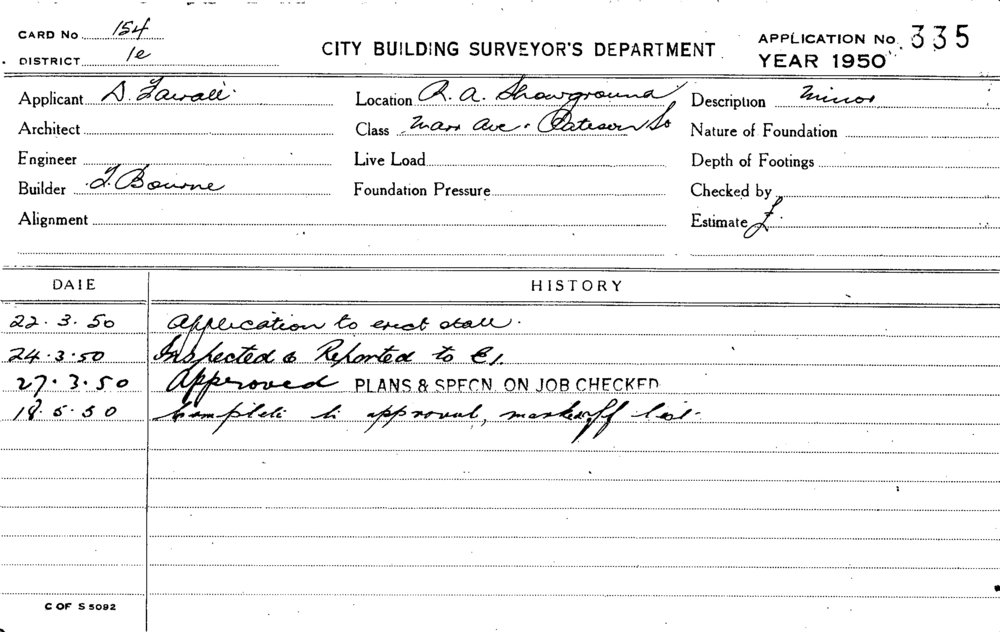 CARD No 154
DISTRICT 1e
CITY BUILDING SURVEYOR'S DEPARTMENT
APPLICATION No. 335
YEAR 1950
Applicant D.
Location R. A. Showground
Description Minor
Architect
Class Marr Ave.
Nature of Foundation
Engineer
Live Load
Depth of Footings
Builder Bourne
Foundation Pressure
Checked by
Alignment
Estimate £
DATE HISTORY
22.3.50 Application to erect stall.
24.3.50 Inspected & Reported to
27.3.50 Approved PLANS & SPECN. ON JOB CHECKED
18.5.50 Complete to approval, mark off list.
C OF S 5092